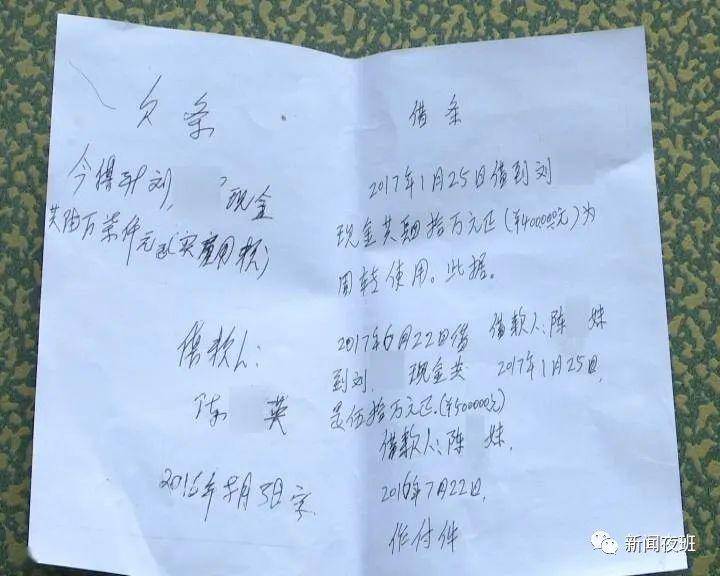 欠条
今得到刘 现金
共陆万柒仟元正(实用款)
借款人:
陈 英
2015年 月3日字
借条
2017年1月25日借到刘
现金共肆拾万元正(¥400000元)为
周转使用。此据。
借款人:陈 妹
2017年1月25日,
2017年6月22日借
到刘, 现金共
是伍拾万元正.(¥500000元)
借款人:陈 妹,
2016年7月22日,
作付件
新闻夜班